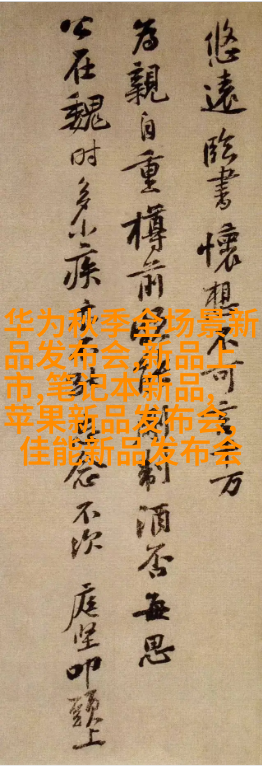 悠遠臨書懷想不可言千万
為親自重樽前能制酒否每思
公在魏時多小疾念不次 庭坚叩頭上
华为秋季全场景新
品发布会,新品上
市,笔记本新品,
苹果新品发布会
佳能新品发布会